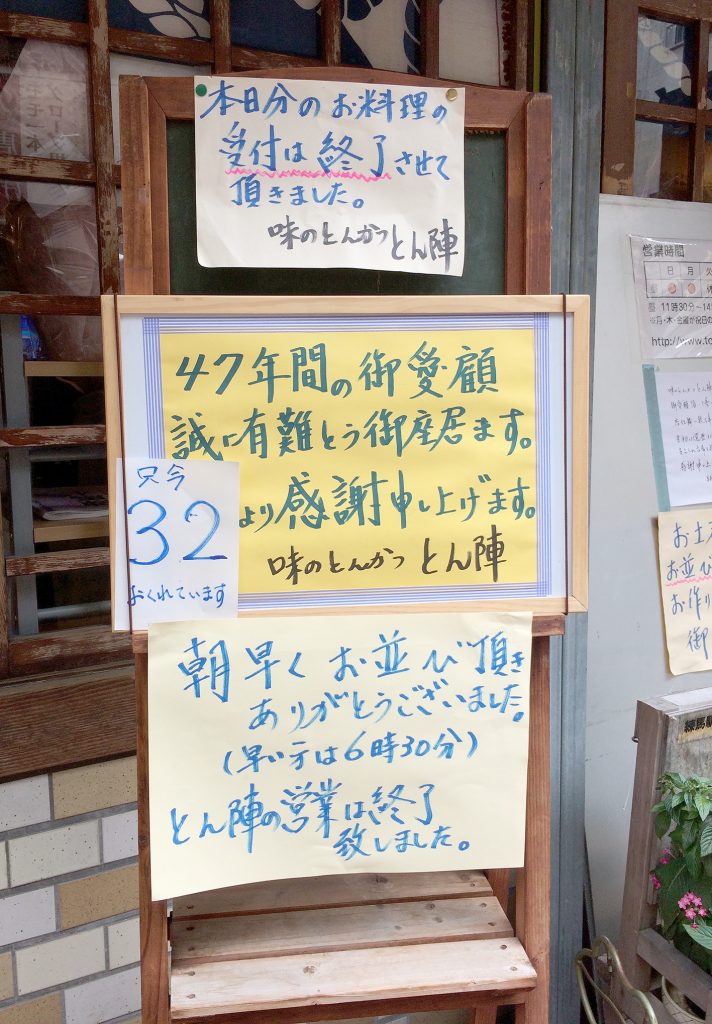 本日分のお料理の
受付は終了させて
頂きました。
味のとんかつとん陣
47年間の御愛顧
誠に有難とう御座居ます。
より感謝申し上げます。
味のとんかつ とん陣
只今
32
おくれています
朝早くお並び頂き
ありがとうございました。
(早い方は6時30分)
とん陣の営業は終了
致しました。
営業時間
日 月 火
休
11時30分~14
http://www.to
お並び
お作り
御
練馬